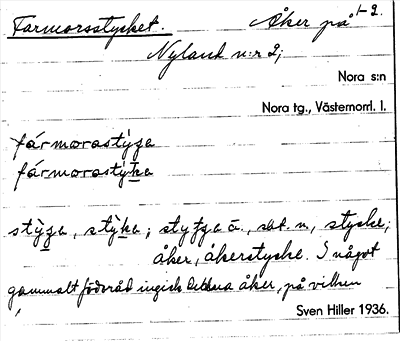 Farmorsstycket. Åker på 1-2.
Nyland n:r 2;
Nora s:n
Nora tg., Västernorrl. l.
fármorastýʒa
fármorastýka
stýʒa, stýka; sty a., n., stycke;
åker, åkerstycke. I något
gammalt födoråd ingick denna åker, på vilken
Sven Hiller 1936.